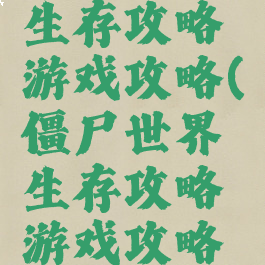 生存攻略
游戏攻略(
僵尸世界
生存攻略
游戏攻略